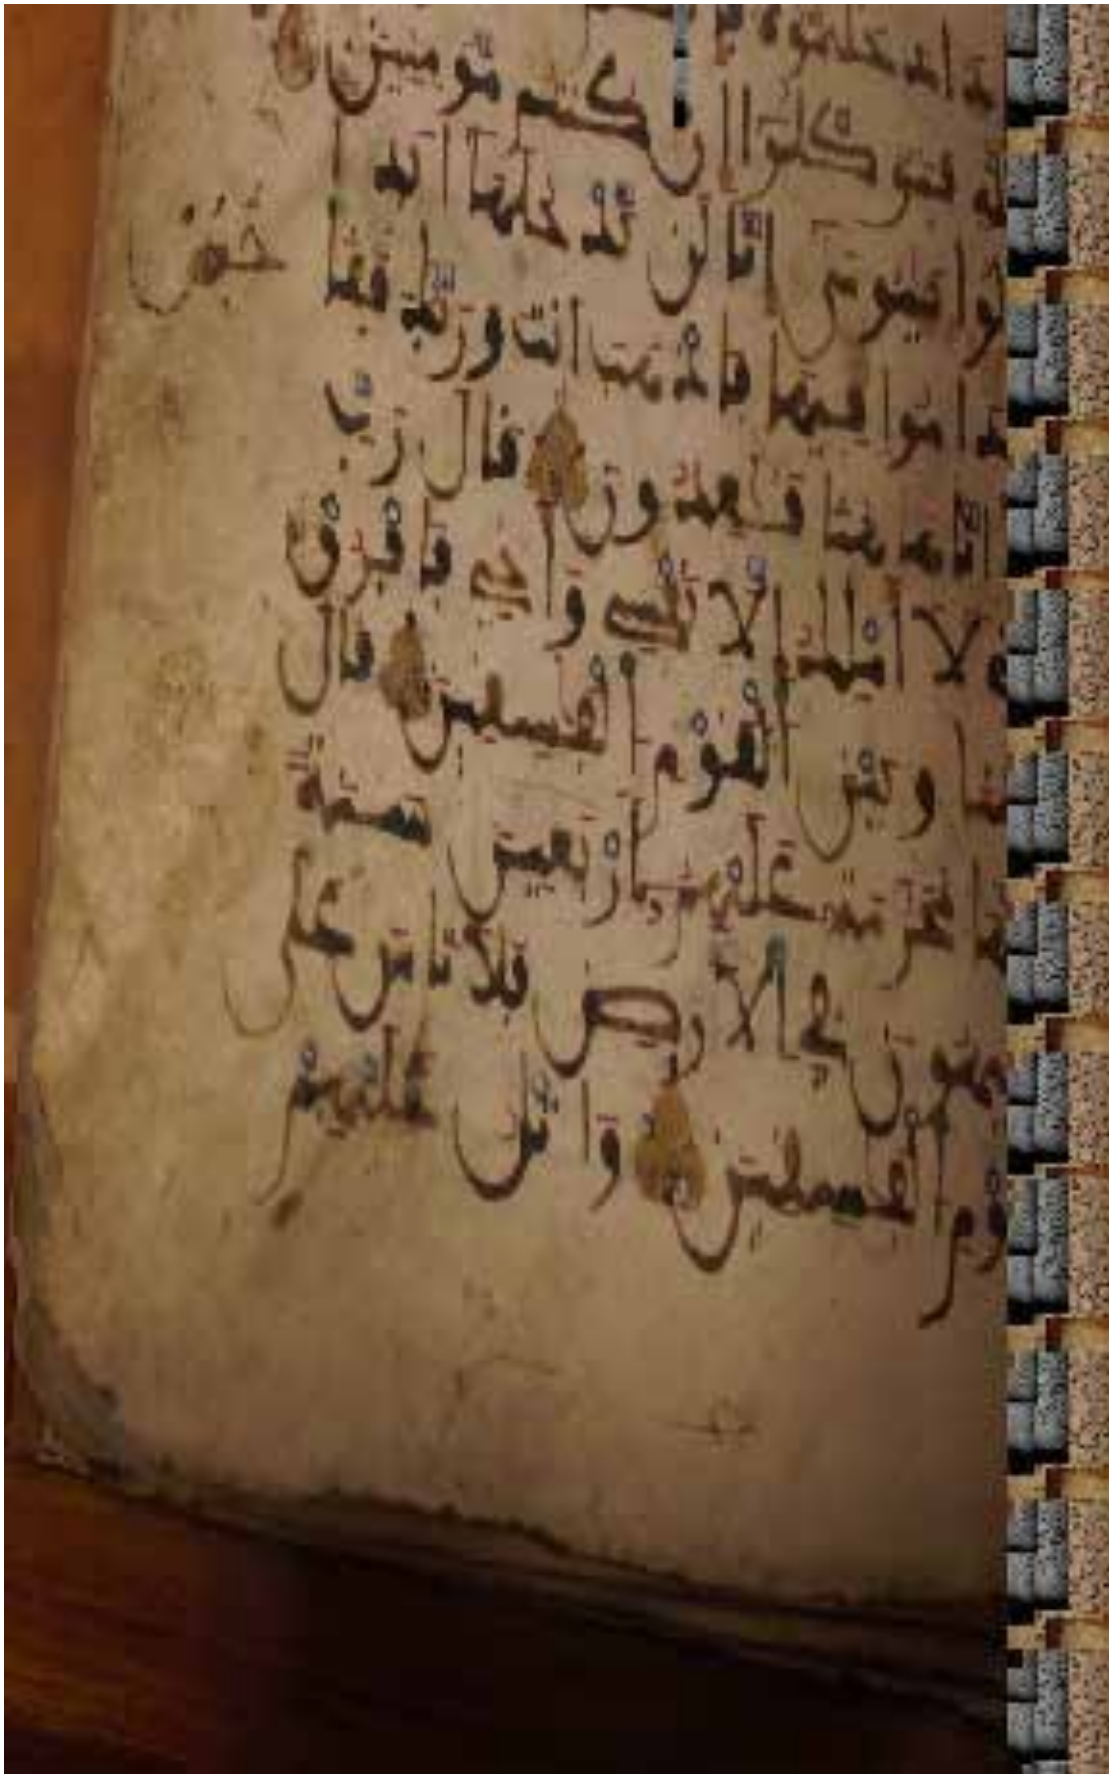 دخلتموه
فتوكلوا ان كنتم مومنين
يموسى انا لن ندخلها ابدا
حبس
داموا فيها فاذهب انت وربك فقتلا
انا ههنا قعدون قال رب
لا املك الا نفسي واخي فافرق
وبين القوم الفسقين قال
محرمة عليهم اربعين سنة
في الارض فلا تاس على
الفسقين واتل عليهم